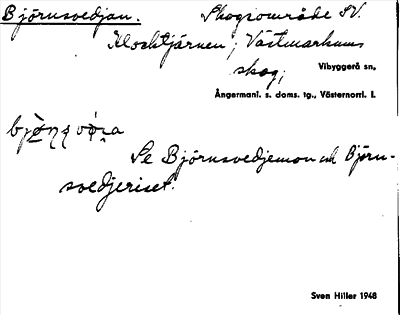 Björnsvedjan. Skogsområde SV.
Klocktjärnen, Västmarkens
skog,
Vibyggerå sn,
Ångermanl. s. doms. tg., Västernorrl. l.
Se Björnsvedjemon och Björn-
svedjeriset.
Sven Hiller 1948